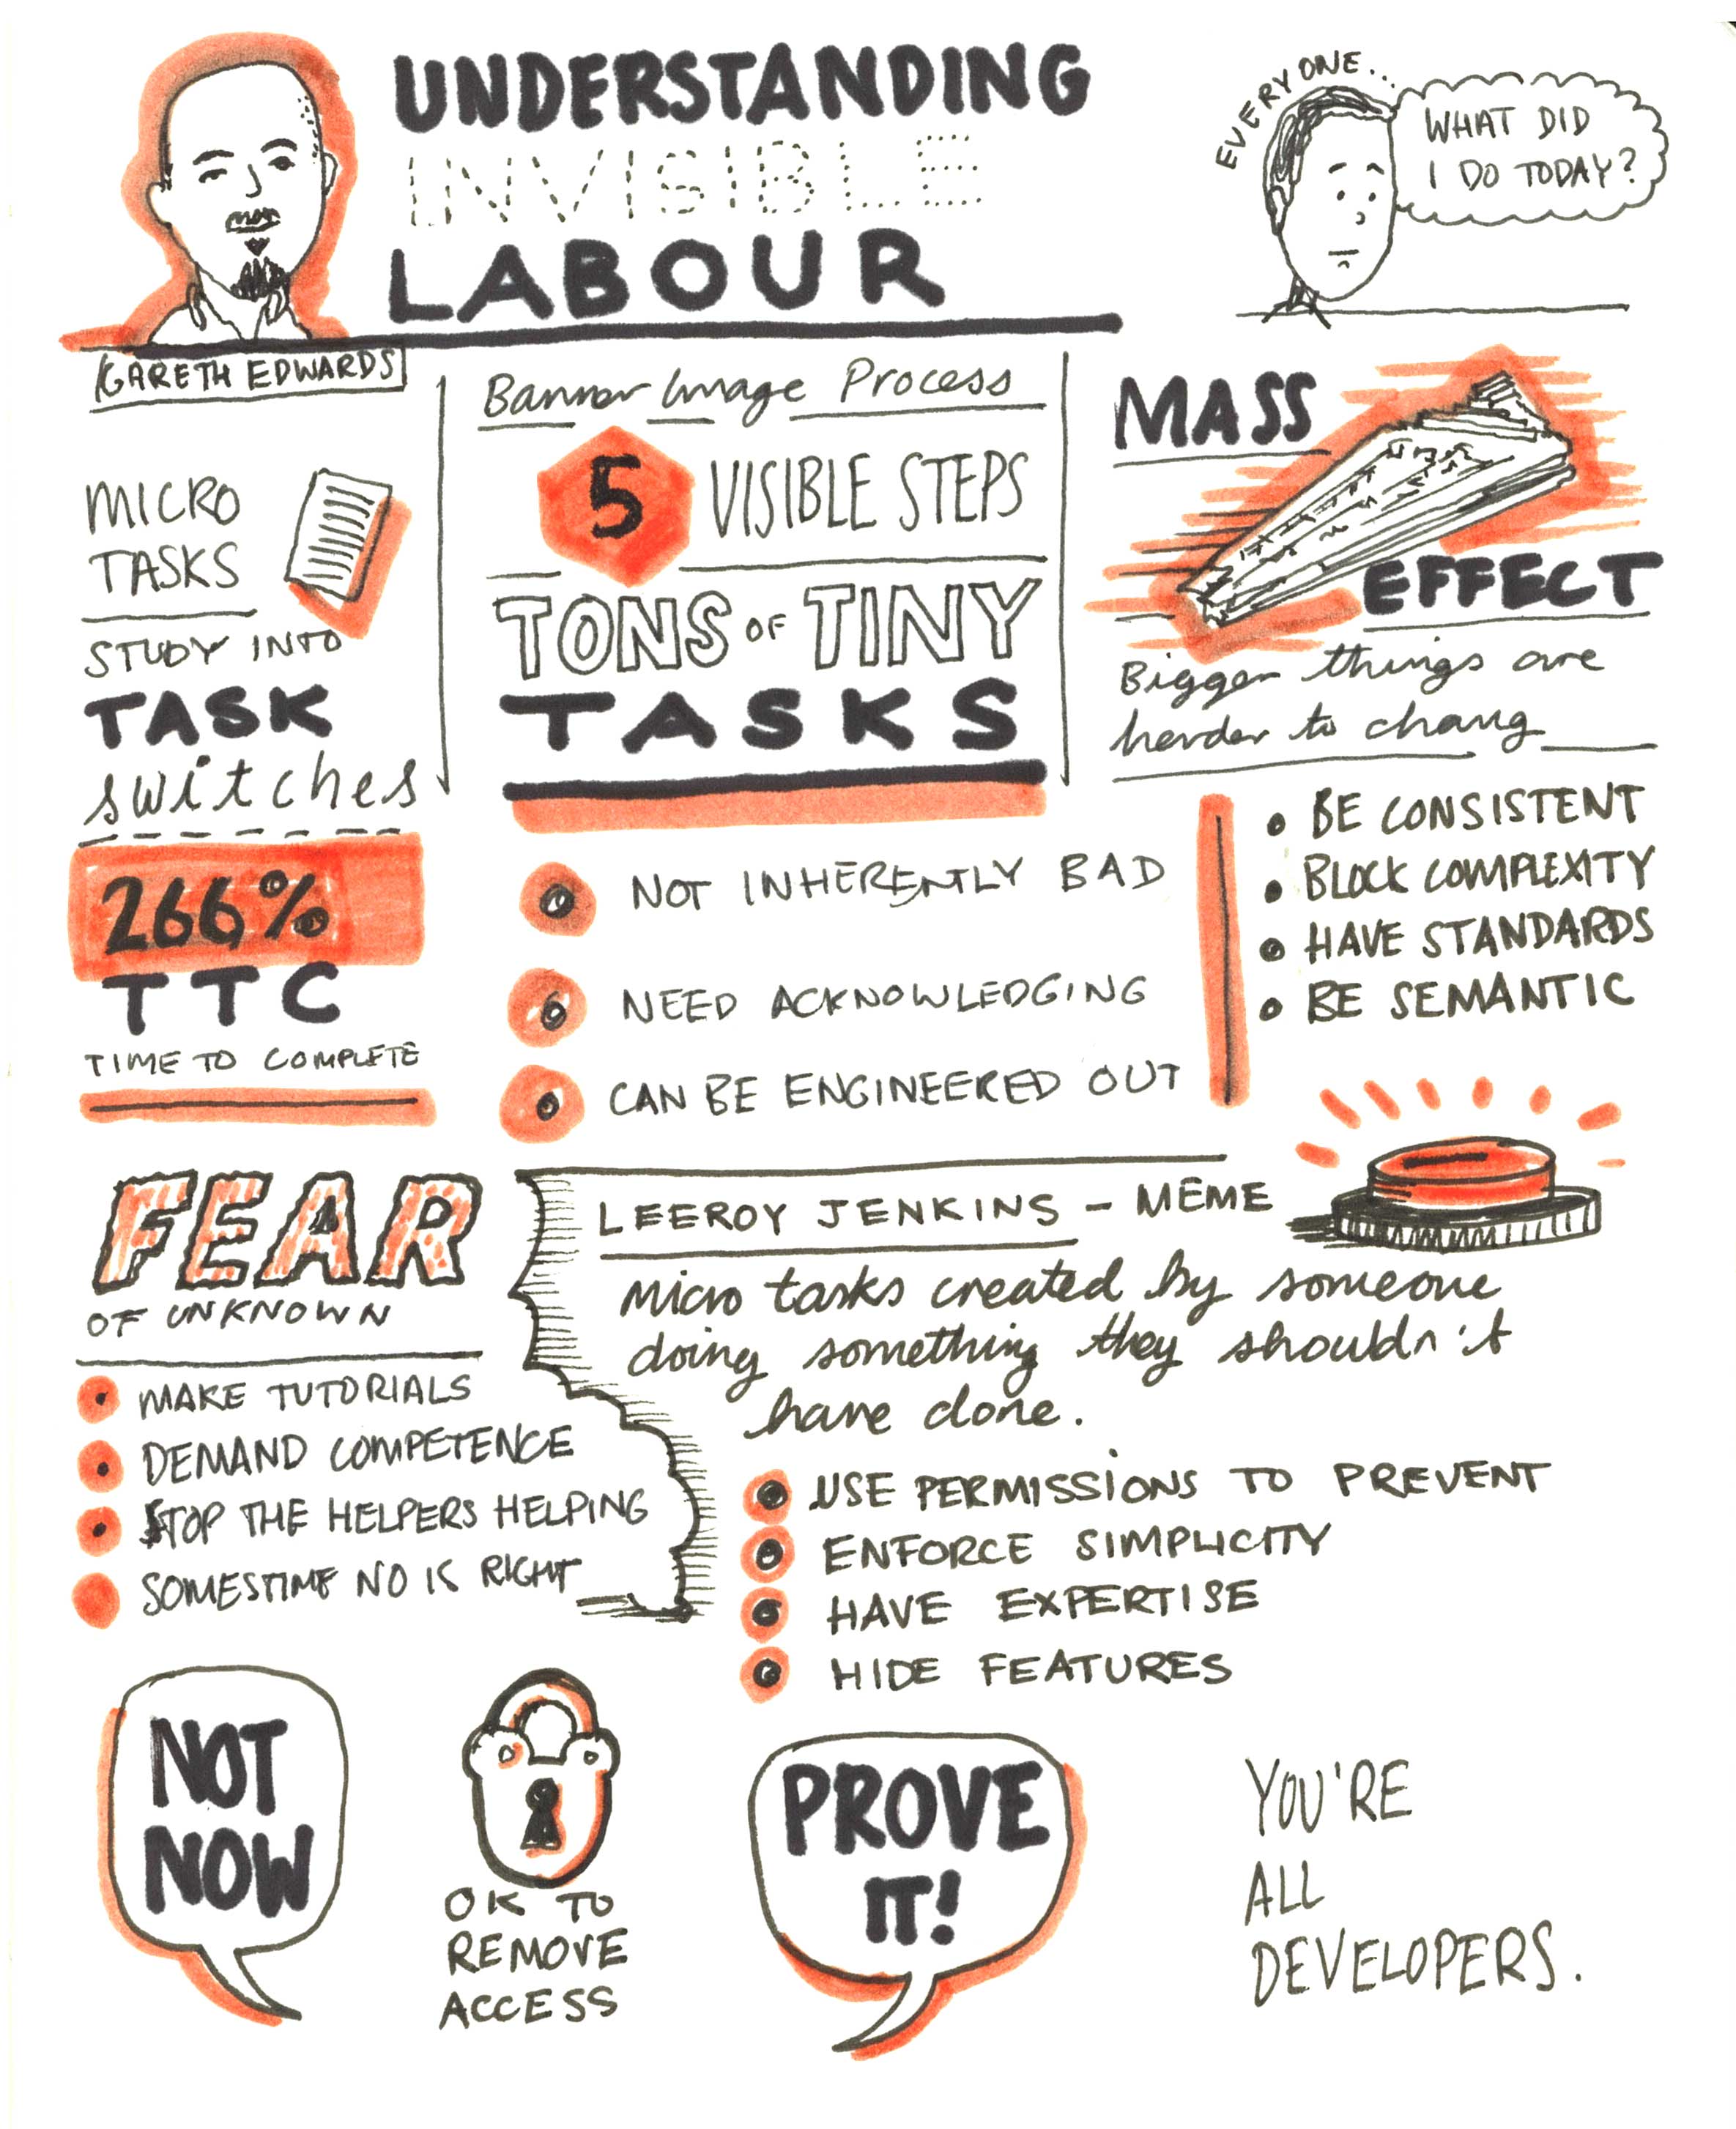 UNDERSTANDING
INVISIBLE
LABOUR
EVERYONE...
WHAT DID
I DO TODAY?
GARETH EDWARDS
MICRO
TASKS
STUDY INTO
TASK
switches
266%
TTC
TIME TO COMPLETE
Banner Image Process
5 VISIBLE STEPS
TONS OF TINY
TASKS
NOT INHERENTLY BAD
NEED ACKNOWLEDGING
CAN BE ENGINEERED OUT
MASS
EFFECT
Bigger things are
harder to chang
• BE CONSISTENT
• BLOCK COMPLEXITY
• HAVE STANDARDS
• BE SEMANTIC
FEAR
OF UNKNOWN
• MAKE TUTORIALS
• DEMAND COMPETENCE
• STOP THE HELPERS HELPING
• SOMESTIME NO IS RIGHT
LEEROY JENKINS - MEME
Micro tasks created by someone
doing something they shouldn't
have done.
• USE PERMISSIONS TO PREVENT
• ENFORCE SIMPLICITY
• HAVE EXPERTISE
• HIDE FEATURES
NOT
NOW
OK TO
REMOVE
ACCESS
PROVE
IT!
YOU'RE
ALL
DEVELOPERS.